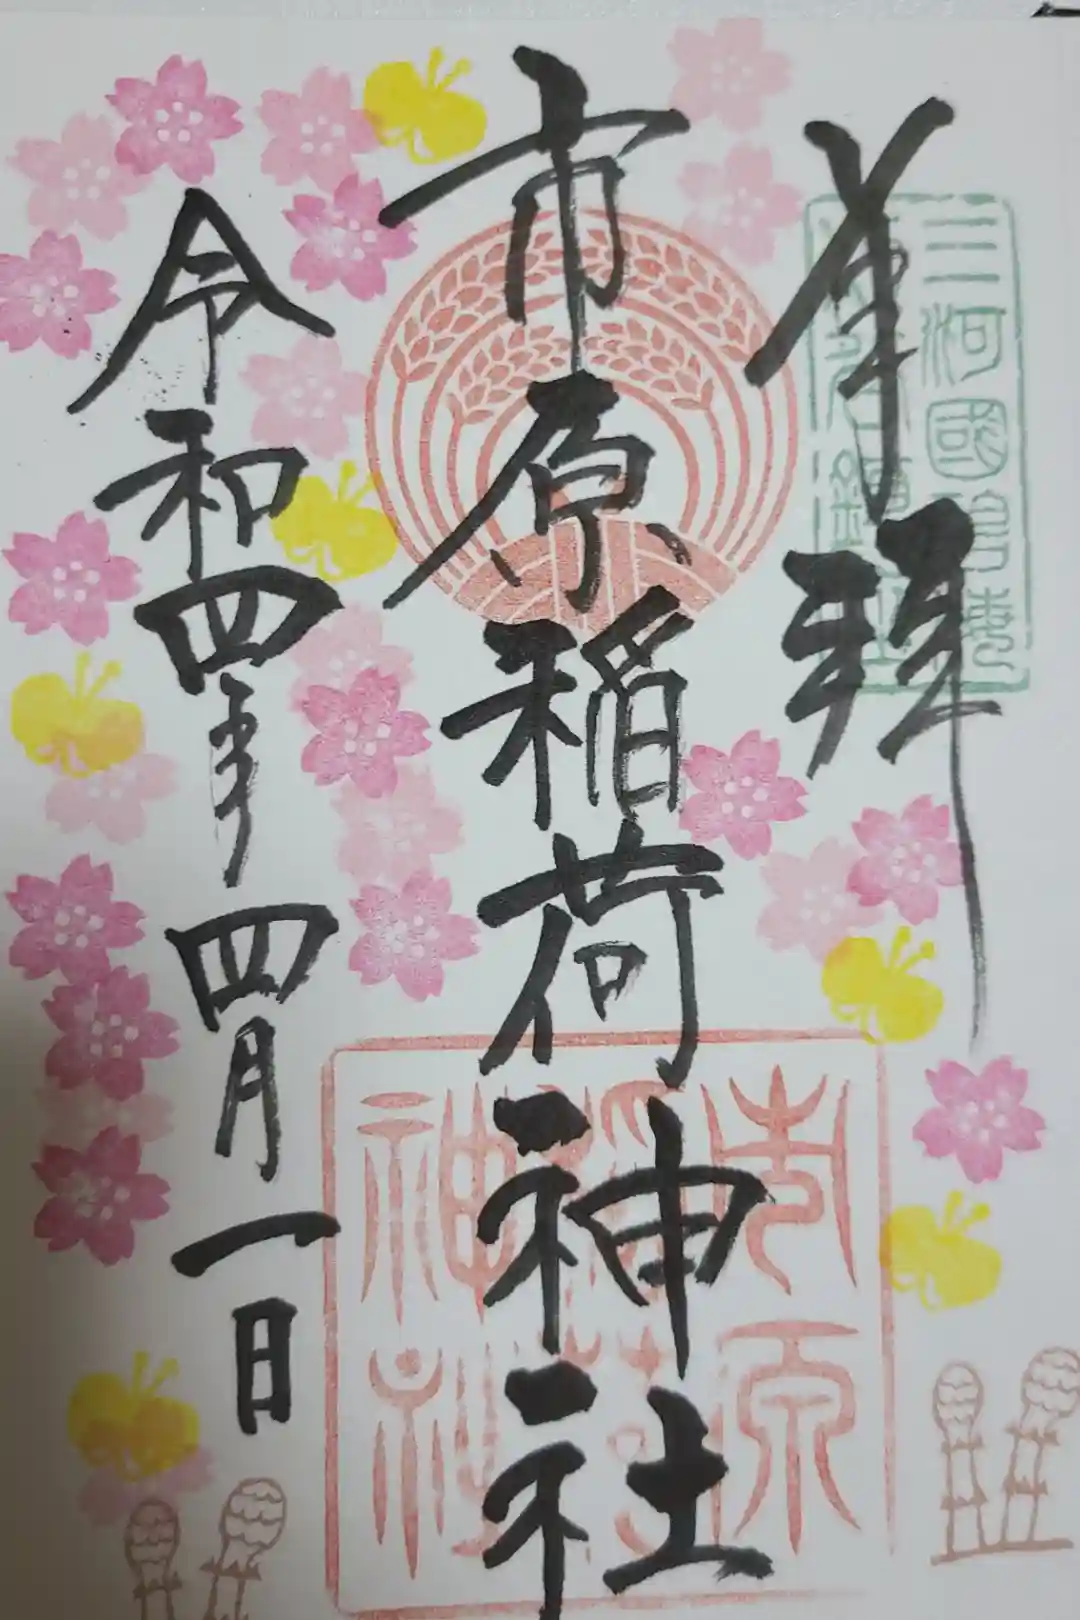 奉拝
三河國碧海
市原稲荷神社
市原稲荷神社
令和四年四月一日